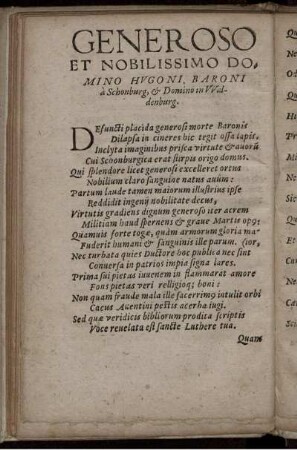 GENEROSO
ET NOBILISSIMO DO,
MINO HVGONI, BARONI
à Schonburg, & Domino in VVal-
denburg.
DEfuncti placida generosi morte Baronis
Dilapsa in cineres hic tegit ossa lapis,
Inclyta imaginibus prisca virtute & auorũ
Cui Schonburgica erat stirpis origo domus.
Qui splendore licet generosi excelleret ortus
Nobilium claro sanguine natus auũm:
Partum laude tamen maiorum illustrius ipse
Reddidit ingenij nobilitate decus,
Virtutis gradiens dignum generoso iter acrem
Militiam haud spernens & graue Martis opg:
Quamuis forte togæ, quàm armorum gloria ma-
Fuderit humani & sanguinis ille parum. (ior,
Nec turbata quies Ductore hoc publica nec sunt
Conuersa in patrios impia signa lares.
Prima sui pietas iuuenem inflammarat amore
Fons pietas veri relligioq; boni:
Non quam fraude mala ille facerrimg intulit orbi
Cæcus Auentini pestis acerba iugi.
Sed quæ veridicis bibliorum prodita scriptis
Voce reuelata est sancte Luthere tua.
Quam